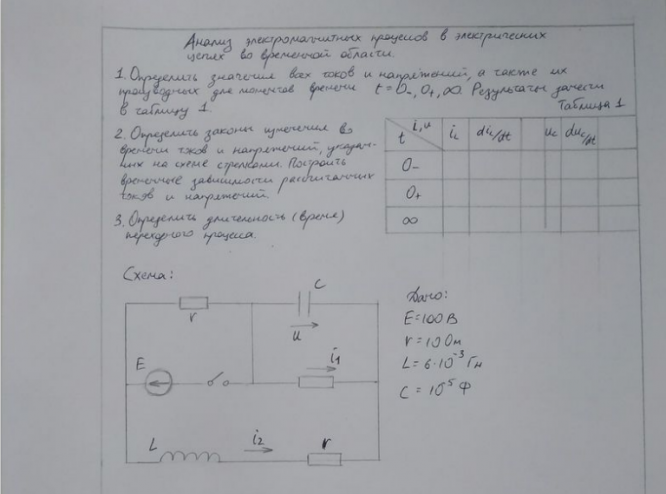 Анализ электромагнитных процессов в электрических
цепях во временной области.
1. Определить значение всех токов и напряжений, а также их
производных для моментов времени t = 0₋, 0₊, ∞. Результаты занести
в таблицу 1.
Таблица 1
2. Определить законы изменения во
времени токов и напряжений, указан-
ных на схеме стрелками. Построить
временные зависимости рассчитанных
токов и напряжений.
3. Определить длительность (время)
переходного процесса.
t i,u iL diL/dt uc duc/dt
0₋
0₊
∞
Схема:
r
C
u
E
i1
L
i2
r
Дано:
E=100В
r=10Ом
L=6·10⁻³Гн
C=10⁻⁵Ф